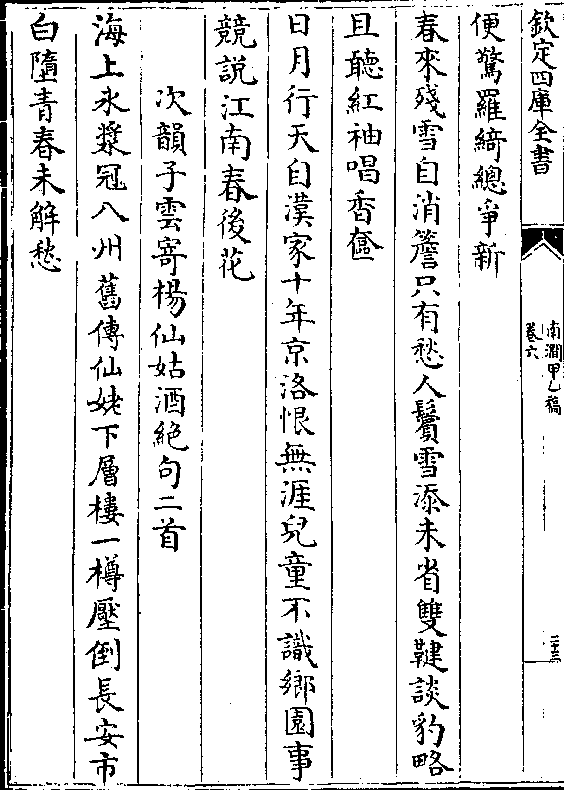 欽定四庫全書
南澗甲乙稿
卷六
二十三
便驚羅綺總爭新
春來殘雪自消簷只有愁人鬢雪添未省雙鞬談豹略
且聽紅袖唱香奩
日月行天自漢家十年京洛恨無涯兒童不識鄉園事
競説江南春後花
次韻子雲寄楊仙姑酒絶句二首
海上氷漿冠八州舊傳仙姥下層樓一樽壓倒長安市
白墮青春未解愁